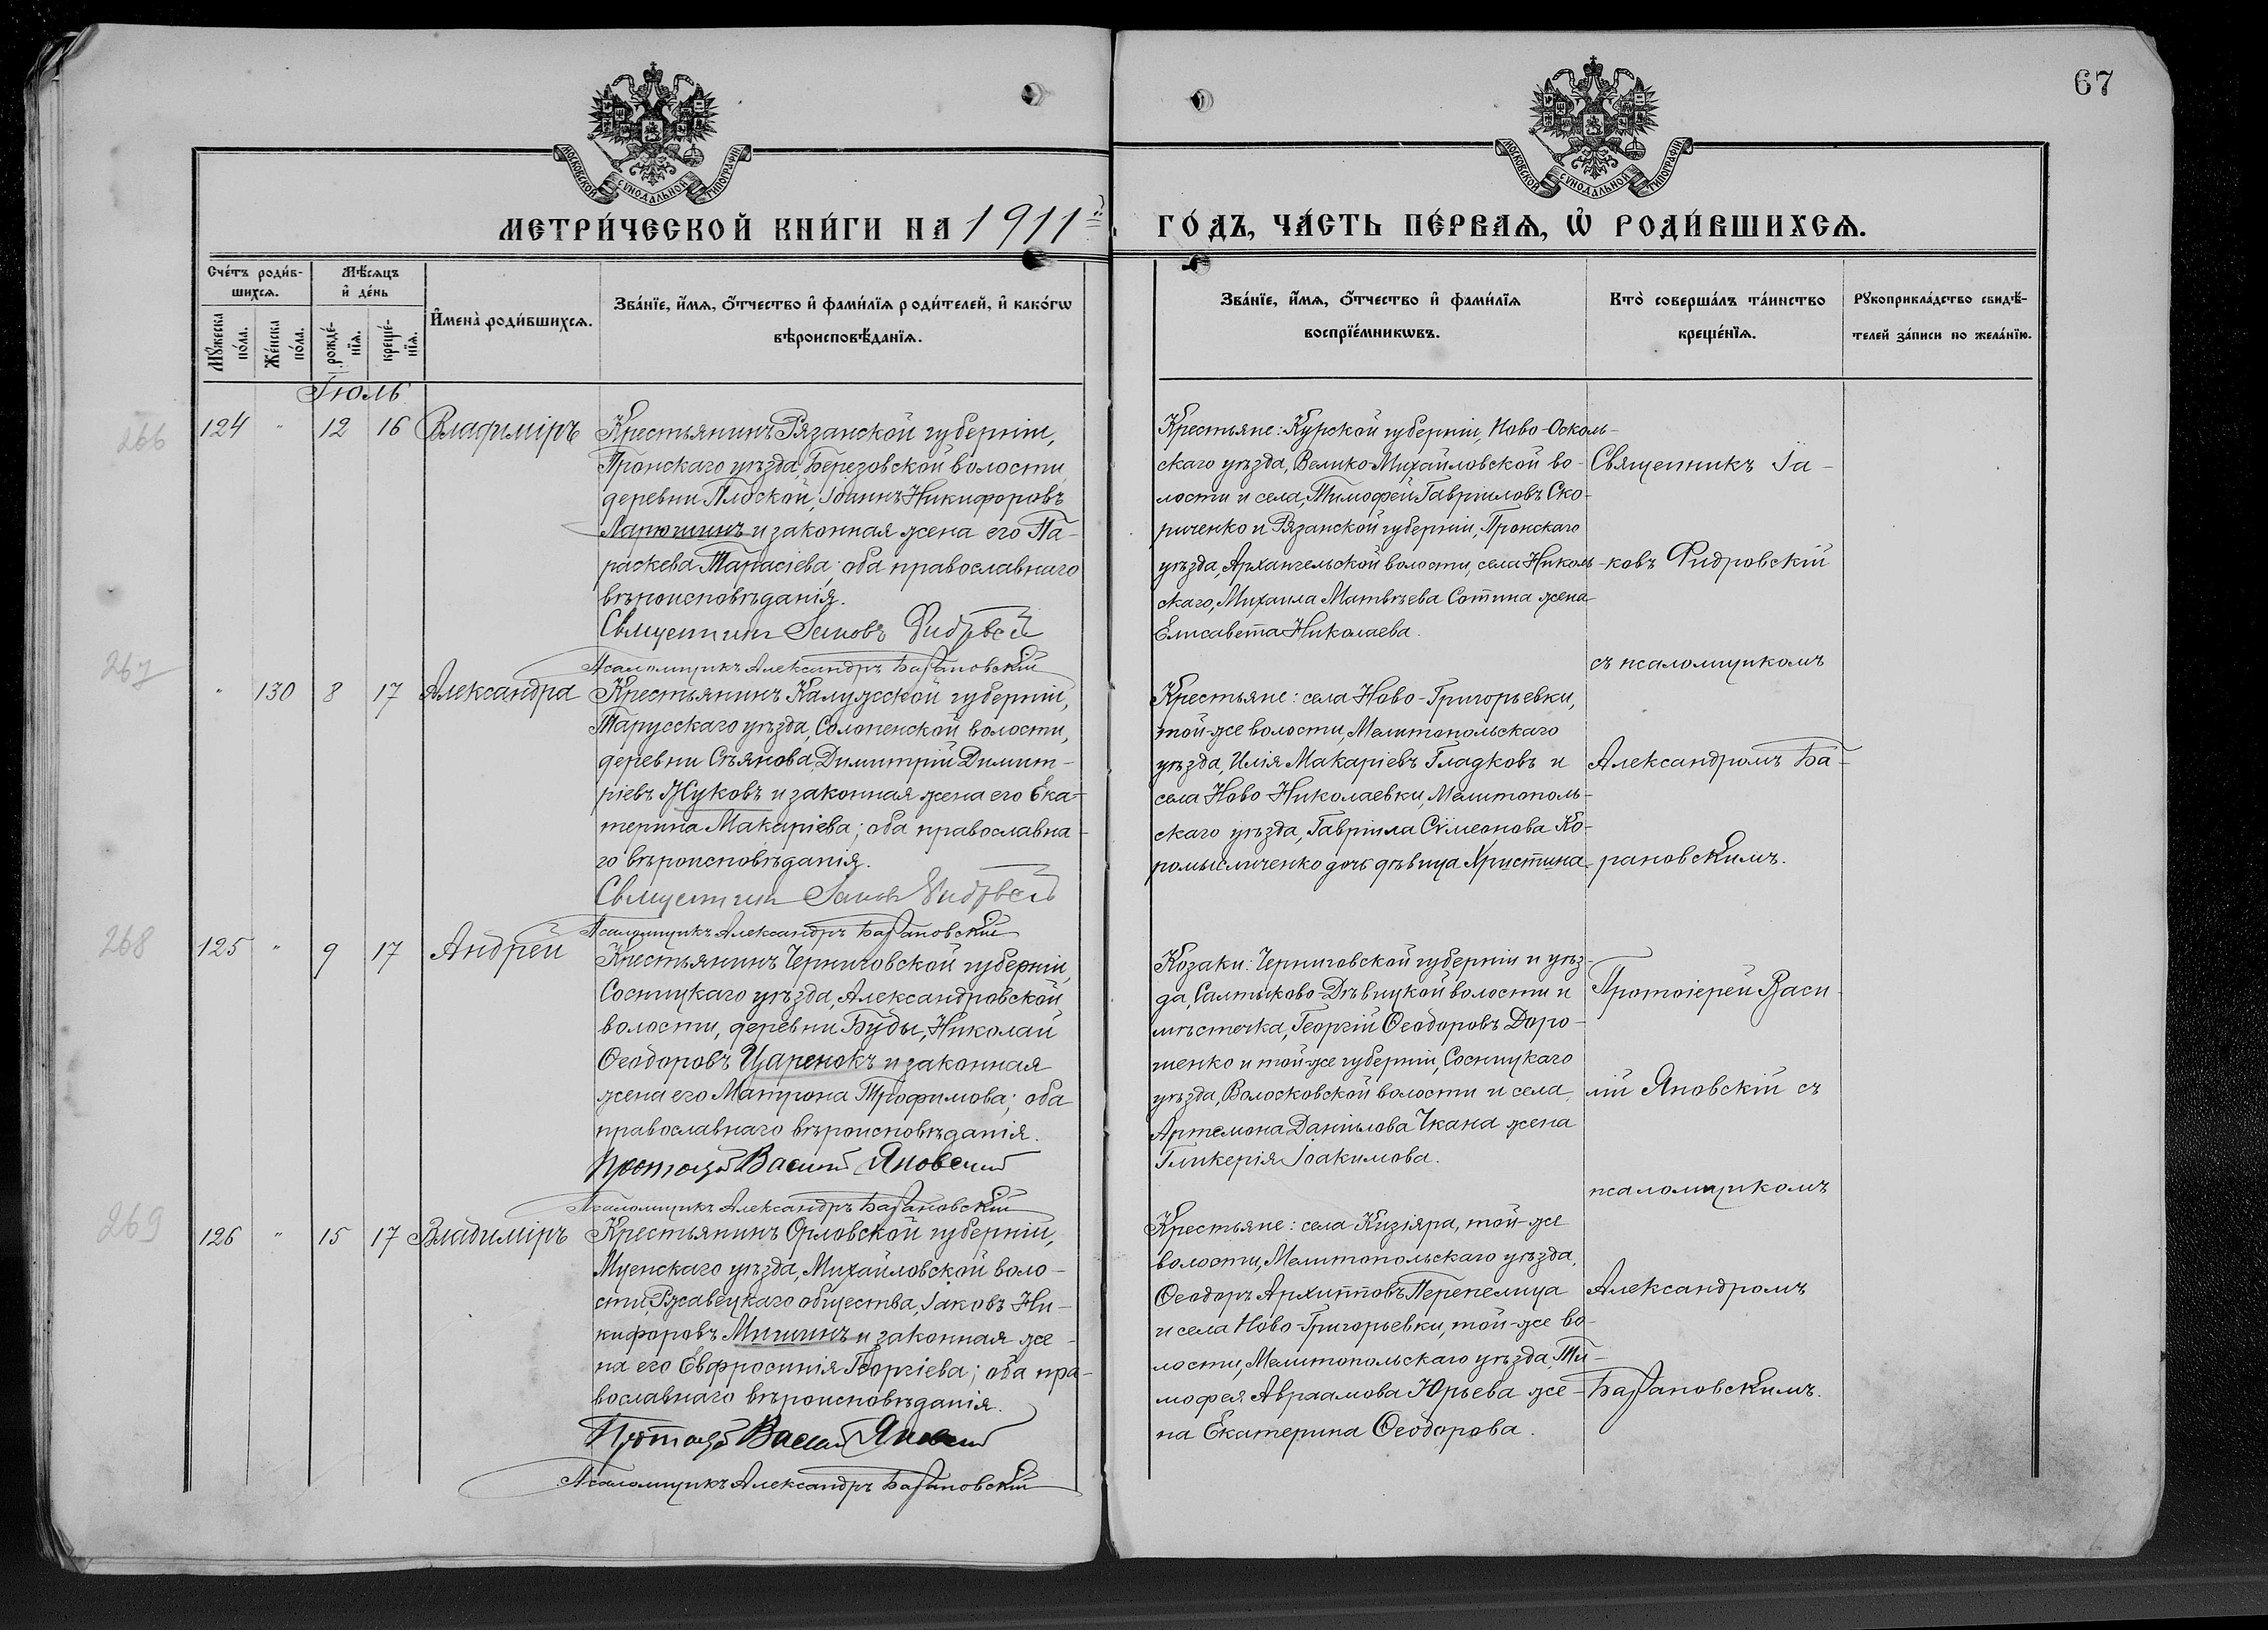 67
МОСКОВСКОЙ СУНОДАЛЬНОЙ ТИПОГРАФІИ
МОСКОВСКОЙ СУНОДАЛЬНОЙ ТИПОГРАФІИ
МЕТРИ́ЧЕСКОЙ КНИ́ГИ НА 1911й ГО́ДЪ, ЧА́СТЬ ПЕ́РВАѦ, Ѡ҆ РОДИ́ВШИХСѦ.
Сче́тъ роди́в-
шихсѧ.
Мꙋ́жеска по́ла.
Же́нска по́ла.
Мѣ́сѧцъ
и҆ де́нь
рожде́-
нїѧ.
креще́-
нїѧ.
И҆мена̀ роди́вшихсѧ.
Зва́нїе, и҆́мѧ, ѻ҆́тчество и҆ фами́лїѧ роди́телей, и҆ како́гѡ
вѣроисповѣ́данїѧ.
Зва́нїе, и҆́мѧ, ѻ҆́тчество и҆ фами́лїѧ
воспрїе́мникѡвъ.
Кто̀ соверша́лъ та́инство
креще́нїѧ.
Рꙋкоприкла́дство свидѣ́-
телей за́писи по жела́нїю.
Іюль
266
124 " 12 16 Владиміръ
Крестьянинъ Рязанской губерніи,
Пронскаго уѣзда, Березовской волости,
деревни Плоской, Іоаннъ Никифоровъ
Ларюшинъ и законная жена его Па-
раскева Тарасіева; оба православнаго
вѣроисповѣданія.
Священникъ Іаковъ Фидровскій
Псаломщикъ Александръ Барановскій
Крестьяне: Курской губерніи, Ново-Осколь-
скаго уѣзда, Велико-Михайловской во-
лости и села, Тимофей Гавріиловъ Ско-
риченко и Рязанской губерніи, Пронскаго
уѣзда, Архангельской волости, села Николь-
скаго, Михаила Матвѣева Сотина жена
Елисавета Николаева.
Священникъ Іа-
ковъ Фидровскій
съ псаломщикомъ
Александромъ Ба-
рановскимъ.
267
" 130 8 17 Александра
Крестьянинъ Калужской губерніи,
Тарусскаго уѣзда, Солопенской волости,
деревни Сѣянова, Димитрій Димит-
ріевъ Жуковъ и законная жена его Ека-
терина Макаріева; оба православна-
го вѣроисповѣданія.
Священникъ Іаковъ Фидровскій
Псаломщикъ Александръ Барановскій
Крестьяне: села Ново-Григорьевки,
той-же волости, Мелитопольскаго
уѣзда, Илія Макаріевъ Гладковъ и
села Ново Николаевки, Мелитополь-
скаго уѣзда, Гавріила Сѵмеонова Ко-
ромысличенко дочь дѣвица Христина.
268
125 " 9 17 Андрей
Крестьянинъ Черниговской губерніи,
Сосницкаго уѣзда, Александровской
волости, деревни Буды, Николай
Ѳеодоровъ Царенокъ и законная
жена его Матрона Трофимова; оба
православнаго вѣроисповѣданія.
Протоіерей Василій Яновский
Псаломщикъ Александръ Барановскій
Козаки: Черниговской губерніи и уѣз-
да, Салтыково-Дѣвицкой волости и
мѣстечка, Георгій Ѳеодоровъ Доро-
шенко и той-же губерніи, Сосницкаго
уѣзда, Волосковской волости и села,
Артемона Даніилова Чкана жена
Гликерія Іоакимова.
Протоіерей Васи-
лій Яновскій съ
псаломщикомъ
Александромъ
Барановскимъ.
269
126 " 15 17 Владиміръ
Крестьянинъ Орловской губерніи,
Мценскаго уѣзда, Михайловской воло-
сти, Ржавецкаго общества, Іаковъ Ни-
кифоровъ Мишинъ и законная же-
на его Евфросинія Георгіева; оба пра-
вославнаго вѣроисповѣданія.
Протоіерей Василій Яновский
Псаломщикъ Александръ Барановскій
Крестьяне: села Кизіяра, той-же
волости, Мелитопольскаго уѣзда,
Ѳеодоръ Архипповъ Перепелица
и села Ново-Григорьевки, той-же во-
лости, Мелитопольскаго уѣзда, Ти-
мофея Авраамова Юрьева же-
на Екатерина Ѳеодорова.